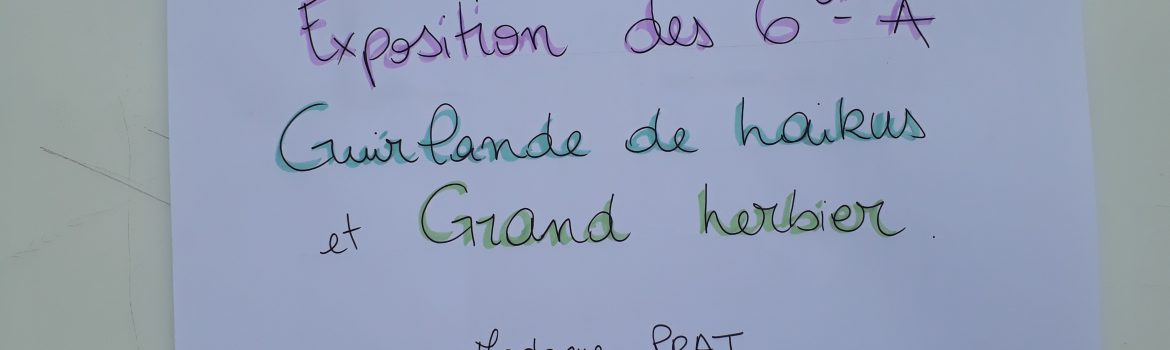 Exposition des 6e A
Guirlande de haikus
et Grand herbier.
Madame PRAT